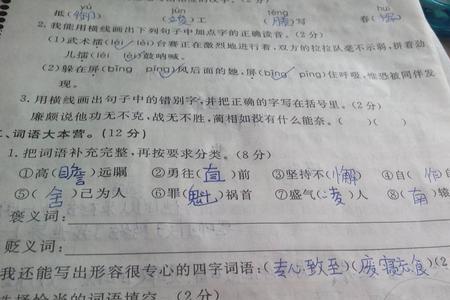 yú jùn téng huì
抵(御) 竣)工 (腾)写 春(
2. 我能用横线画出下列句子中加点字的正确读音。(2 分)
(1)武术擂(lèi léi)台赛正在激烈地进行着,双方的拉拉队毫不示弱,拼着劲
儿擂(lèi léi)鼓呐喊。
(2)躲在屏(bǐng píng)风后面的她,屏(bǐng píng)住呼吸,惟恐被同伴发
现。
3. 用横线画出句子中的错别字,并把正确的字写在括号里。(2 分)
廉颇说他功无不克,战无不胜,蔺相如没有什么能奈。( )( )
、词语大本营。(12 分)
1. 把词语补充完整,再按要求分类。(8 分)
①高(瞻)远瞩 ②勇往(直)前 ③坚持不(懈) ④自( 自
⑤(舍)己为人 ⑥罪(魁)祸首 ⑦盛气(凌)人 ⑧(南)辕
褒义词:
贬义词:
我还能写出形容很专心的四字词语:(专心致至)(废寝忘食)(2
选择恰当的词语填空。(2 分)